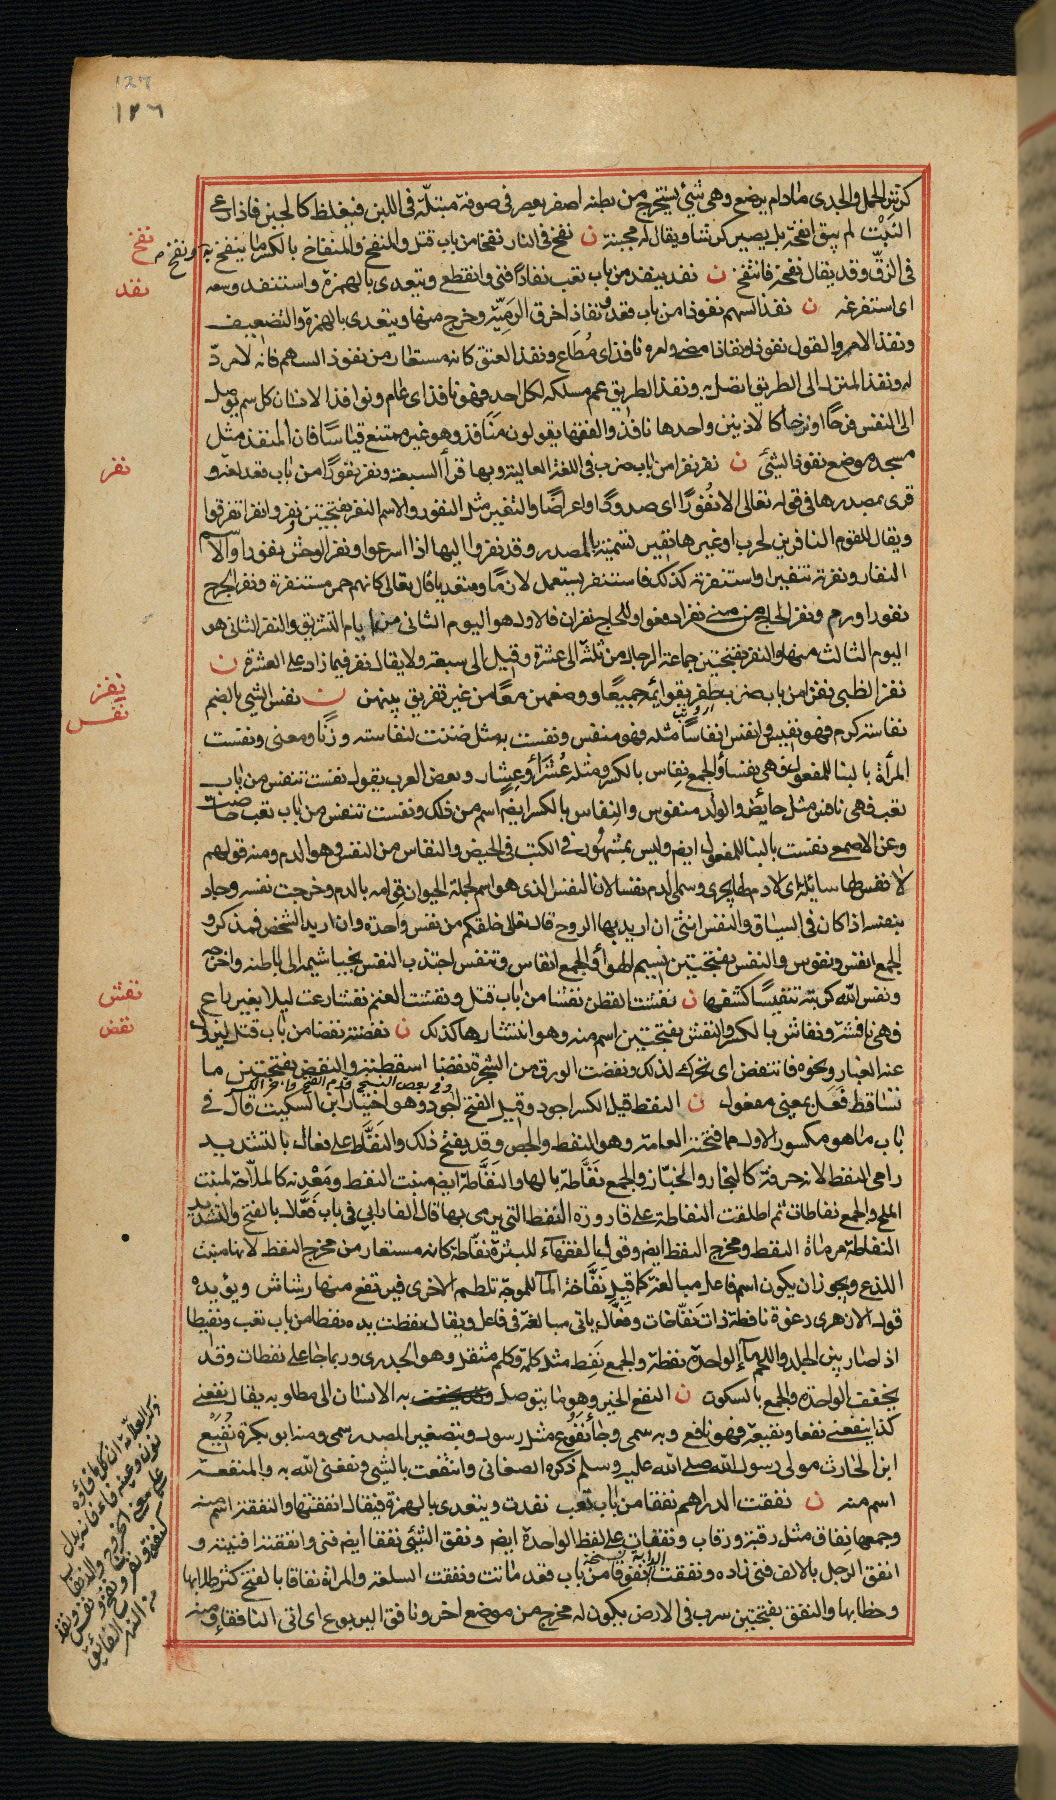 ١٢٦
كرش الحمل والجدى مادام يرضع وهى شئ يستخرج من بطنه اصفر يعصر فى صوفة مبتلّة فى اللبن فيغلظ كالجبن فاذا رعى
النَبْت لم يبق انفحة بل يصير كرشا ويقال له مجبنة ن نفخ فى النار نفخا من باب قتل والمنفخ والمنفاخ بالكسر ما ينفخ به ونفخ
فى الزقّ وقد يقال نفخته فانتفخ ن نفد ينفد من باب تعب نفادًا فنى وانقطع ويتعدى بالهمزة واستنفد وسعه
اى استفرغه ن نفذ السهم نفوذا من باب قعد ونفاذ اخرق الرَمِيّة وخرج منها ويتعدى بالهمزة والتضعيف
ونفذ الامر والقول نفوذا ونفاذا مضى وامره نافذ اى مُطَاع ونفذ العتق كانه مستعار من نفوذ السهم فانه لا مردّ
له ونفذ المنزل الى الطريق اتصل به ونفذ الطريق عمّ مسلكه لكل احد فهو نافذ اى عام ونوافذ الانسان كل سم يوصل
الى النفس فرحًا او ترحًا كالاذنين واحدها نافذ والفقهاء يقولون مَنَافذ وهو غير ممتنع قياسًا فان المنفذ مثل
مسجد موضع نفوذ الشئ ن نفر نفرا من باب ضرب فى اللغة العالية وبها قرأ السبعة ونفر نفورًا من باب قعد لغة و
قرئ بمصدرها فى قوله تعالى الا نُفُورًا اى صدودًا واعراضًا والنفير مثل النفور والاسم النفر بفتحتين ونفر وانفرا تفرقوا
ويقال للقوم النافرين لحرب او غيرها نفير تسمية بالمصدر وقد نفروا اليها اذا اسرعوا ونفر الوحش نفورا والاسم
النفار ونفرته تنفيرا واستنفرته كذلك فاستنفر يستعمل لازمًا ومتعديا قال تعالى كانهم حمر مستنفرة ونفر الجرح
نفورا ورم ونفر الحاج من منى نفرا دفعوا وللحاج نفران فالاول هو اليوم الثانى من ايام التشريق والنفر الثانى هو
اليوم الثالث منها والنفر بفتحتين جماعة الرجال من ثلثة الى عشرة وقيل الى سبعة ولا يقال نفر فيما زاد على العشرة ن
نفز الظبى نفزا من باب ضرب ظفر بقوائمه جميعًا ووضعهن معًا من غير تفريق بينهن ن نفس الشئ بالضم
نفاسة كرم فهو نفيس وانفس انفاسًا مثله فهو منفس ونفست به مثل ضننت لنفاسته وزنًا ومعنى ونفست
المرأة بالبنا للمفعول فهى نفسأ والجمع نِفاس بالكسر ومثله عُشَرَاء وعِشار وبعض العرب يقول نفست تنفس من باب
تعب فهى نافس مثل حائض والولد منفوس والنفاس بالكسر ايضا اسم من ذلك ونفست تنفس من باب تعب حاضت
وعن الاصمعى نفست بالبنا للمفعول ايضا وليس بمشهور فى الكتب فى الحيض والنفاس من النفس وهو الدم ومنه قولهم
لا نفس لها سائلة اى لا دم لها يجرى وسمى الدم نفسا لان النفس الذى هو اسم لجملة الحيوان قوامه بالدم وخرجت نفسه وجاد
بنفسه اذا كان فى السياق والنفس انثى ان اريد بها الروح قال تعالى خلقكم من نفس واحدة وان اريد الشخص فمذكر و
الجمع انفس ونفوس والنفس بفتحتين نسيم الهوأ والجمع انفاس وتنفس اجتذب النفس بخياشيمه الى باطنه واخرجه
ونفس الله كربته تنفيسًا كشفها ن نفشت القطن نفشا من باب قتل ونفشت الغنم نفشا رعت ليلا بغير راع
فهى نافشة ونفاش بالكسر والنفش بفتحتين اسم منه وهو انتشارها كذلك ن نفضته نفضا من باب قتل ليزول
عنه الغبار ونحوه فانتفض اى تحرك لذلك ونفضت الورق من الشجرة نفضا اسقطته والنفض بفتحتين ما
تساقط فَعَل بمعنى مفعول ن النفط قيل الكسر اجود وقيل الفتح اجود وهو اختيار ابن السكيت قال فى
باب ما هو مكسور الاول مما فتحته العامة وهو النفط والجص وقد يفتح ذلك والنَفّاط على فعال بالتشديد
رامى النفط لانه حرفة كالنجار والخبّاز والجمع نَفَّاطة بالها والنَفَّاطة ايضا منبت النفط ومَعْدِنه كالملّاحة لمنبت
الملح والجمع نفاطات ثم اطلقت النفاطة على قارورة النفط التى يرمى بها قال الفارابى فى باب فَعَّال بالفتح والتشديد
النفاطة مرماة النفط ومخرج النفط ايضا وقول الفقهآء للبثرة نفّاطة كانه مستعار من مخرج النفط لانها منبت
اللذع ويجوز ان يكون اسم فاعل مبالغة كما قيل نَفَّاخة الماء للموجة تلطم الاخرى فيرتفع منها رشاش ويؤيده
قول الازهرى رغوة نافطة ذات نَفّاخات وفعّال ياتى مبالغة فى فاعل ويقال نفطت يده نفطا من باب تعب ونفيطا
اذا صار بين الجلد واللحم مآء الواحدة نفطة والجمع نَفِط مثل كلمة وكلم متفقد وهو الجدرى وربما جا على نفطات وقد
يخفف الواحدة والجمع بالسكون ن النفع الخير وهو ما يتوصل به الانسان الى مطلوبه يقال نفعنى
كذا ينفعنى نفعا ونفيعة فهو نافع وبه سمى وجا نَفُوع مثل رسول وبتصغير المصدر سمى ومنه ابو بكرة نُفَيْع
ابن الحارث مولى رسول الله صلى الله عليه وسلم ذكره الصغانى وانتفعت بالشئ ونفعنى الله به والمنفعة
اسم منه ن نفقت الدراهم نفقا من باب تعب نفدت ويتعدى بالهمزة فيقال انفقتها والنفقة اسم منه
وجمعها نِفاق مثل رقبة ورقاب ونفقات على لفظ الواحدة ايضا ونفق الشئ نفقا ايضا فنى وانفقته افنيته و
انفق الرجل بالالف فنى زاده ونفقت الدابة نفوقا من باب قعد ماتت ونفقت السلعة والمرأة نفاقا بالفتح كثر طلابها
وخطابها والنفق بفتحتين سرب فى الارض يكون له مخرج من موضع اخر ونافق اليربوع اى اتى النافقاء ومنه
نفخ
نفد
نفر
نفز
نفس
نفش
نفض